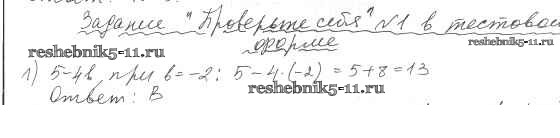 Задание "Проверьте себя" №1 в тестовой
форме
reshebnik5-11.ru.
reshebnik5-11.ru
1) 5-4в, при в=-2; 5-4·(-2) = 5+8=13
reshebnik5-11.ru
Ответ: В